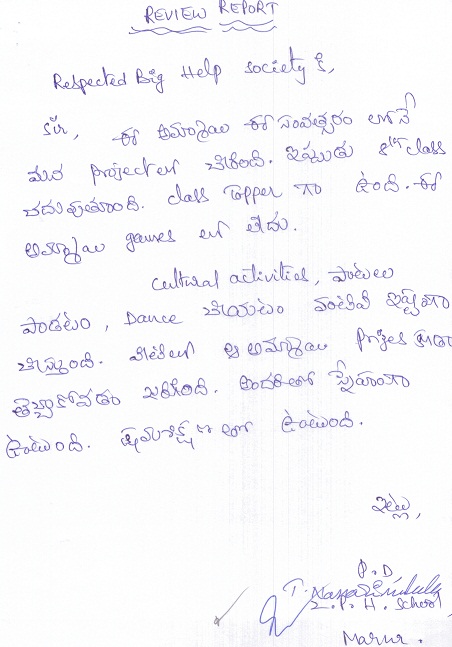 REVIEW REPORT
Respected Big Help society కి,
Sir, ఈ అమ్మాయి ఈ సంవత్సరం లోనే
మన project లో చేరింది. ఇప్పుడు 8th class
చదువుతూంది. class Topper గా ఉంది. ఈ
అమ్మాయి games లో లేదు.
cultural activities, పాటలు
పాడటం, Dance చేయటం వంటివి ఇష్టంగా
చేస్తుంది. వీటిలో ఆ అమ్మాయి prizes కూడా
తెచ్చుకోవడం జరిగింది. అందరితో స్నేహంగా
ఉంటుంది. క్రమశిక్షణ తో ఉంటుంది.
ఇట్లు,
P.D,
Z.P.H. School
Marur.